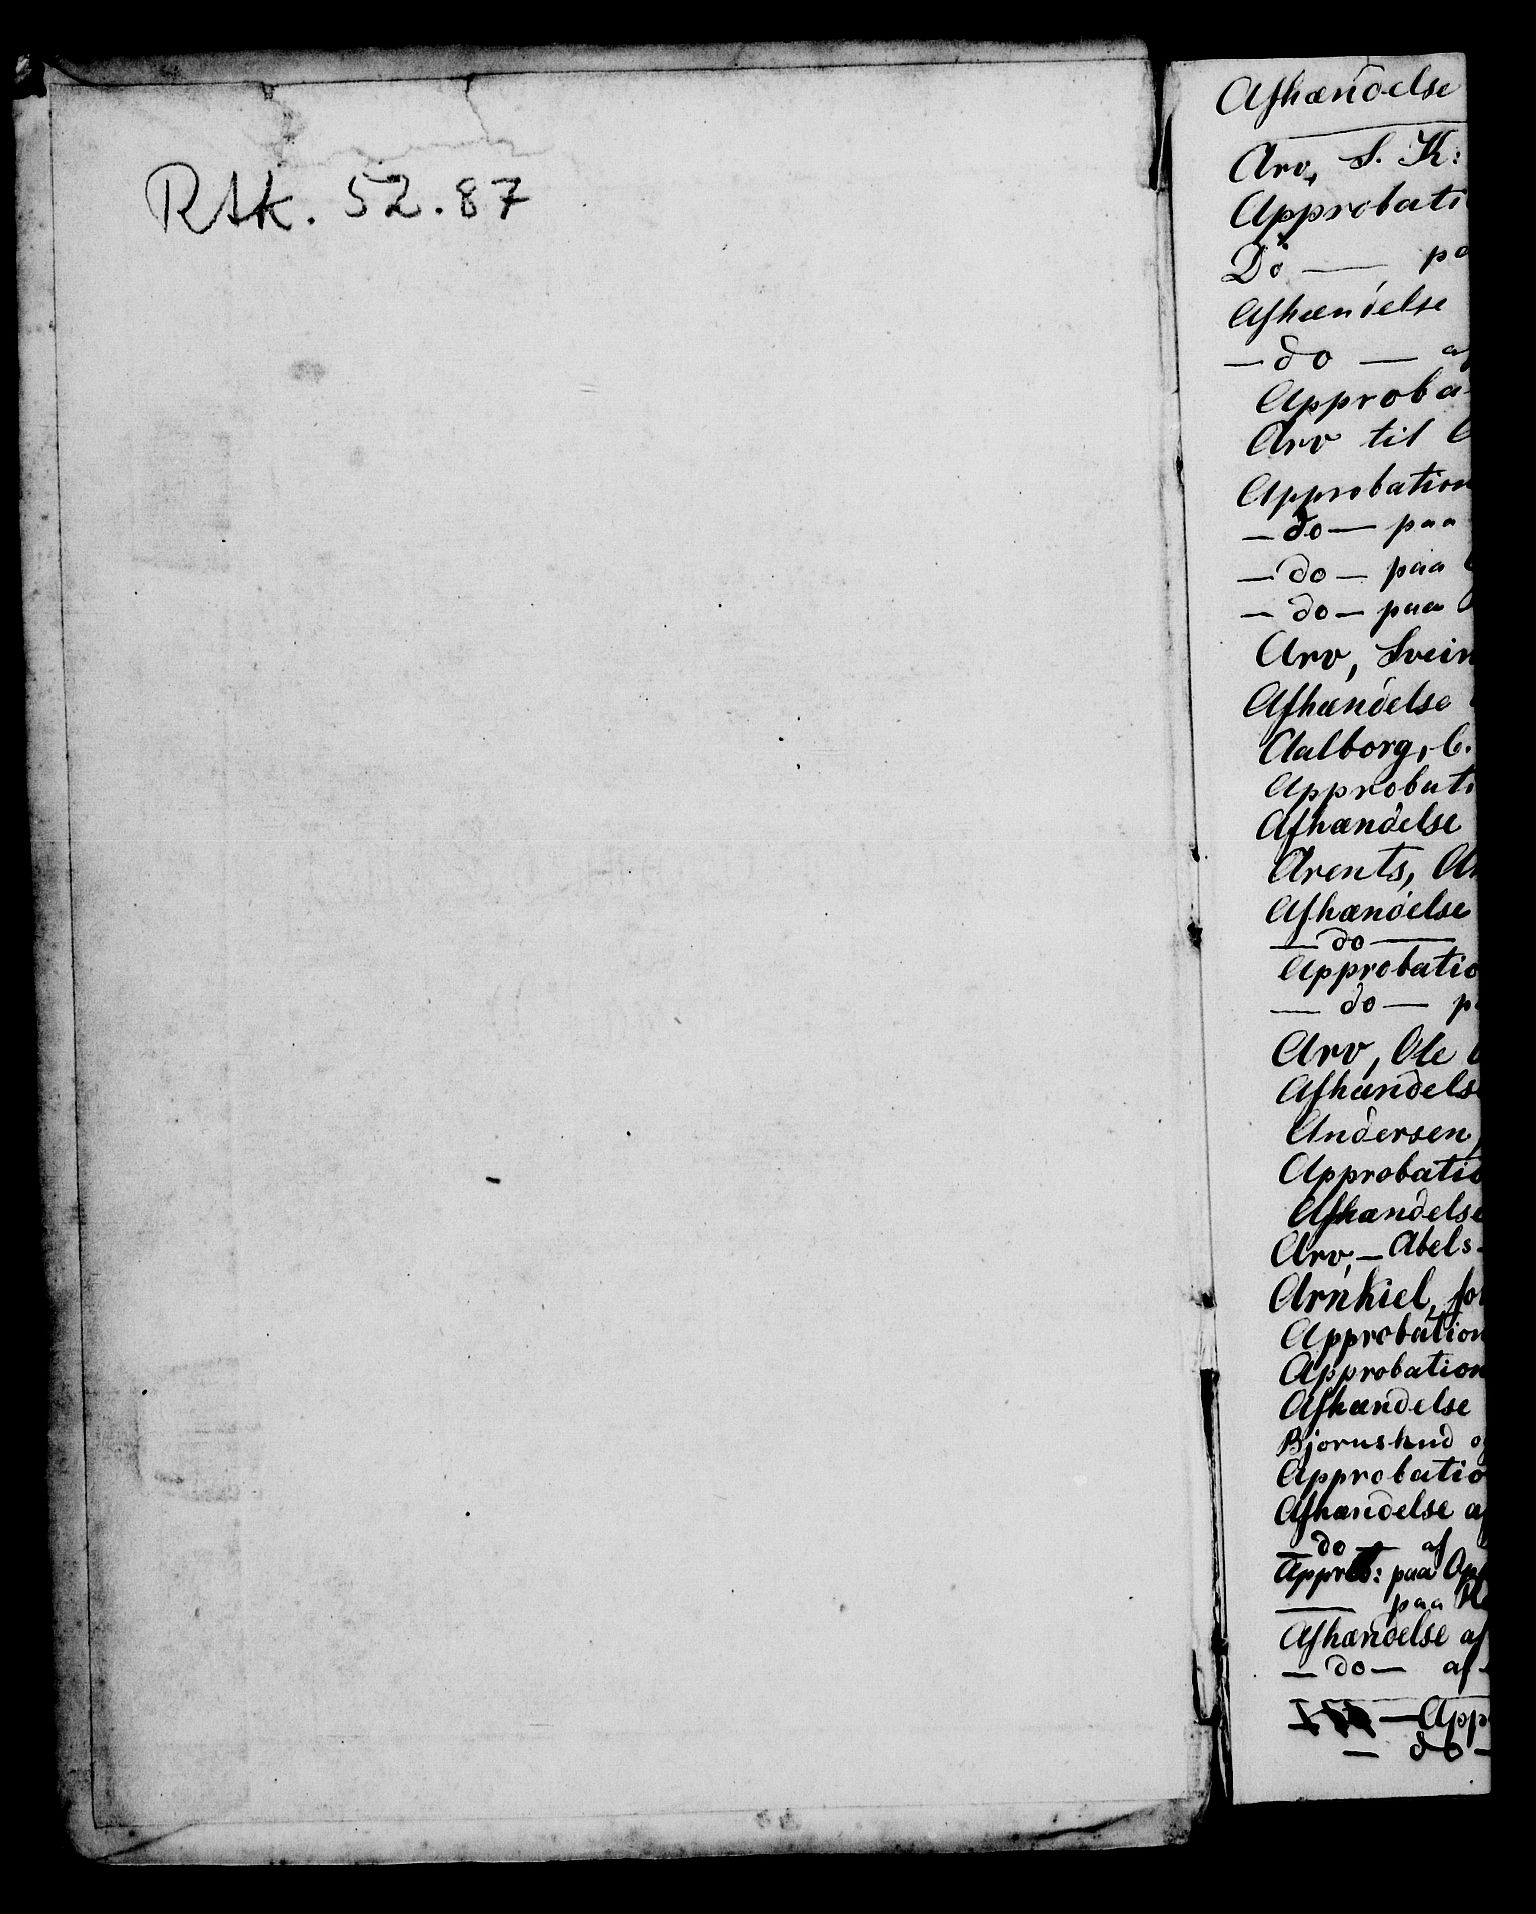 Rtk. 52.87
Afhændelse
Arv, S. K:
Approbati
Do — pa
Afhændelse
— do — af
Approba
Arv til
Approbation
— do — paa
— do — paa
— do — paa
Arv, Svein
Afhændelse
Aalborg, C.
Approbati
Afhændelse
Arents, An
Afhændelse
— do —
Approbatio
— do — p
Arv, Ole
Afhændelse
Andersen,
Approbatio
Afhændelse
Arv, — Abels-
Arnkiel, for
Approbation
Approbation
Afhændelse
Bjornshud og
Approbatio
Afhændelse af
— do — af
Approb: paa Op
— paa
Afhændelse af
— do — af
— App
— do —